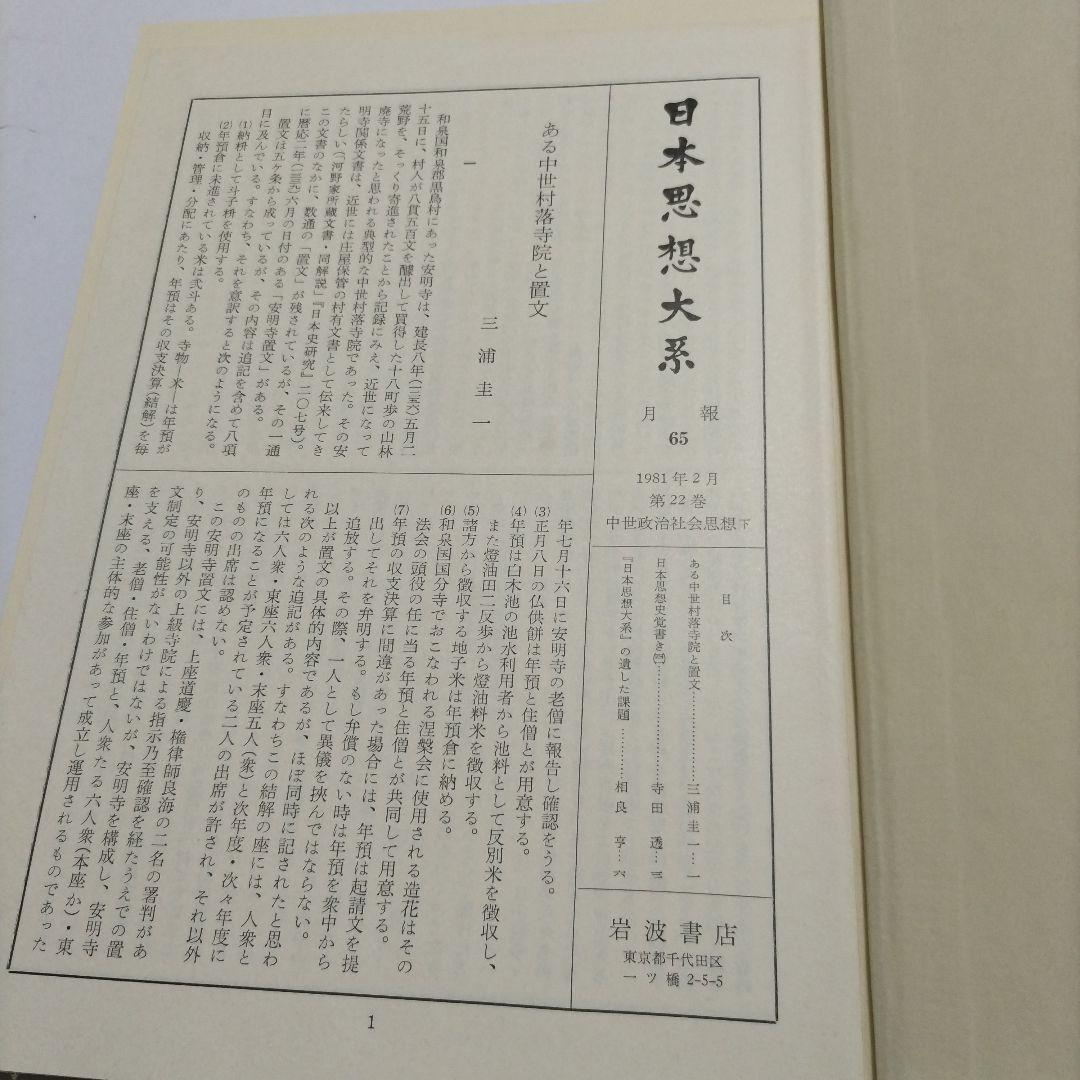 日本思想大系
月報
65
1981年2月
第22巻
中世政治社会思想 下
目次
ある中世村落寺院と置文…………三浦圭一…一
日本思想史覚書き㈣…………寺田透…三
『日本思想大系』の遺した課題…………相良亨…六
岩波書店
東京都千代田区
一ツ橋2-5-5
ある中世村落寺院と置文
三浦圭一
一
和泉国和泉郡黒鳥村にあった安明寺は、建長八年(一二五六)五月二
十五日に、村人が八貫五百文を醵出して買得した十八町歩の山林
荒野を、そっくり寄進されたことから記録にみえ、近世になって
廃寺になったと思われる典型的な中世村落寺院であった。その安
明寺関係文書は、近世には庄屋保管の村有文書として伝来してき
たらしい(「河野家所蔵文書・同解説」『日本史研究』二〇七号)。
この文書のなかに、数通の「置文」が残されているが、その一通
に暦応二年(一三三九)六月の日付のある「安明寺置文」がある。
置文は五ヶ条から成っているが、その内容は追記を含めて八項
目に及んでいる。すなわち、それを意訳すると次のようになる。
(1)納枡として斗子枡を使用する。
(2)年預倉に未進されている米は弐斗ある。寺物―米―は年預が
収納・管理・分配にあたり、年預はその収支決算(結解)を毎
年七月十六日に安明寺の老僧に報告し確認をうる。
(3)正月八日の仏供餅は年預と住僧とが用意する。
(4)年預は白木池の池水利用者から池料として反別米を徴収し、
また燈油田二反歩から燈油料米を徴収する。
(5)諸方から徴収する地子米は年預倉に納める。
(6)和泉国国分寺でおこなわれる涅槃会に使用される造花はその
法会の頭役の任に当る年預と住僧とが共同して用意する。
(7)年預の収支決算に間違があった場合には、年預は起請文を提
出してそれを弁明する。もし弁償のない時は年預を衆中から
追放する。その際、一人として異儀を挾んではならない。
以上が置文の具体的内容であるが、ほぼ同時に記されたと思わ
れる次のような追記がある。すなわちこの結解の座には、人衆と
しては六人衆・東座六人衆・末座五人(衆)と次年度・次々年度に
年預になることが予定されている二人の出席が許され、それ以外
のものの出席は認めない。
この安明寺置文には、上座道慶・権律師良海の二名の署判があ
り、安明寺以外の上級寺院による指示乃至確認を経たうえでの置
文制定の可能性がないわけではないが、安明寺を構成し、安明寺
を支える、老僧・住僧・年預と、人衆たる六人衆(本座か)・東
座・末座の主体的な参加があって成立し運用されるものであった
1